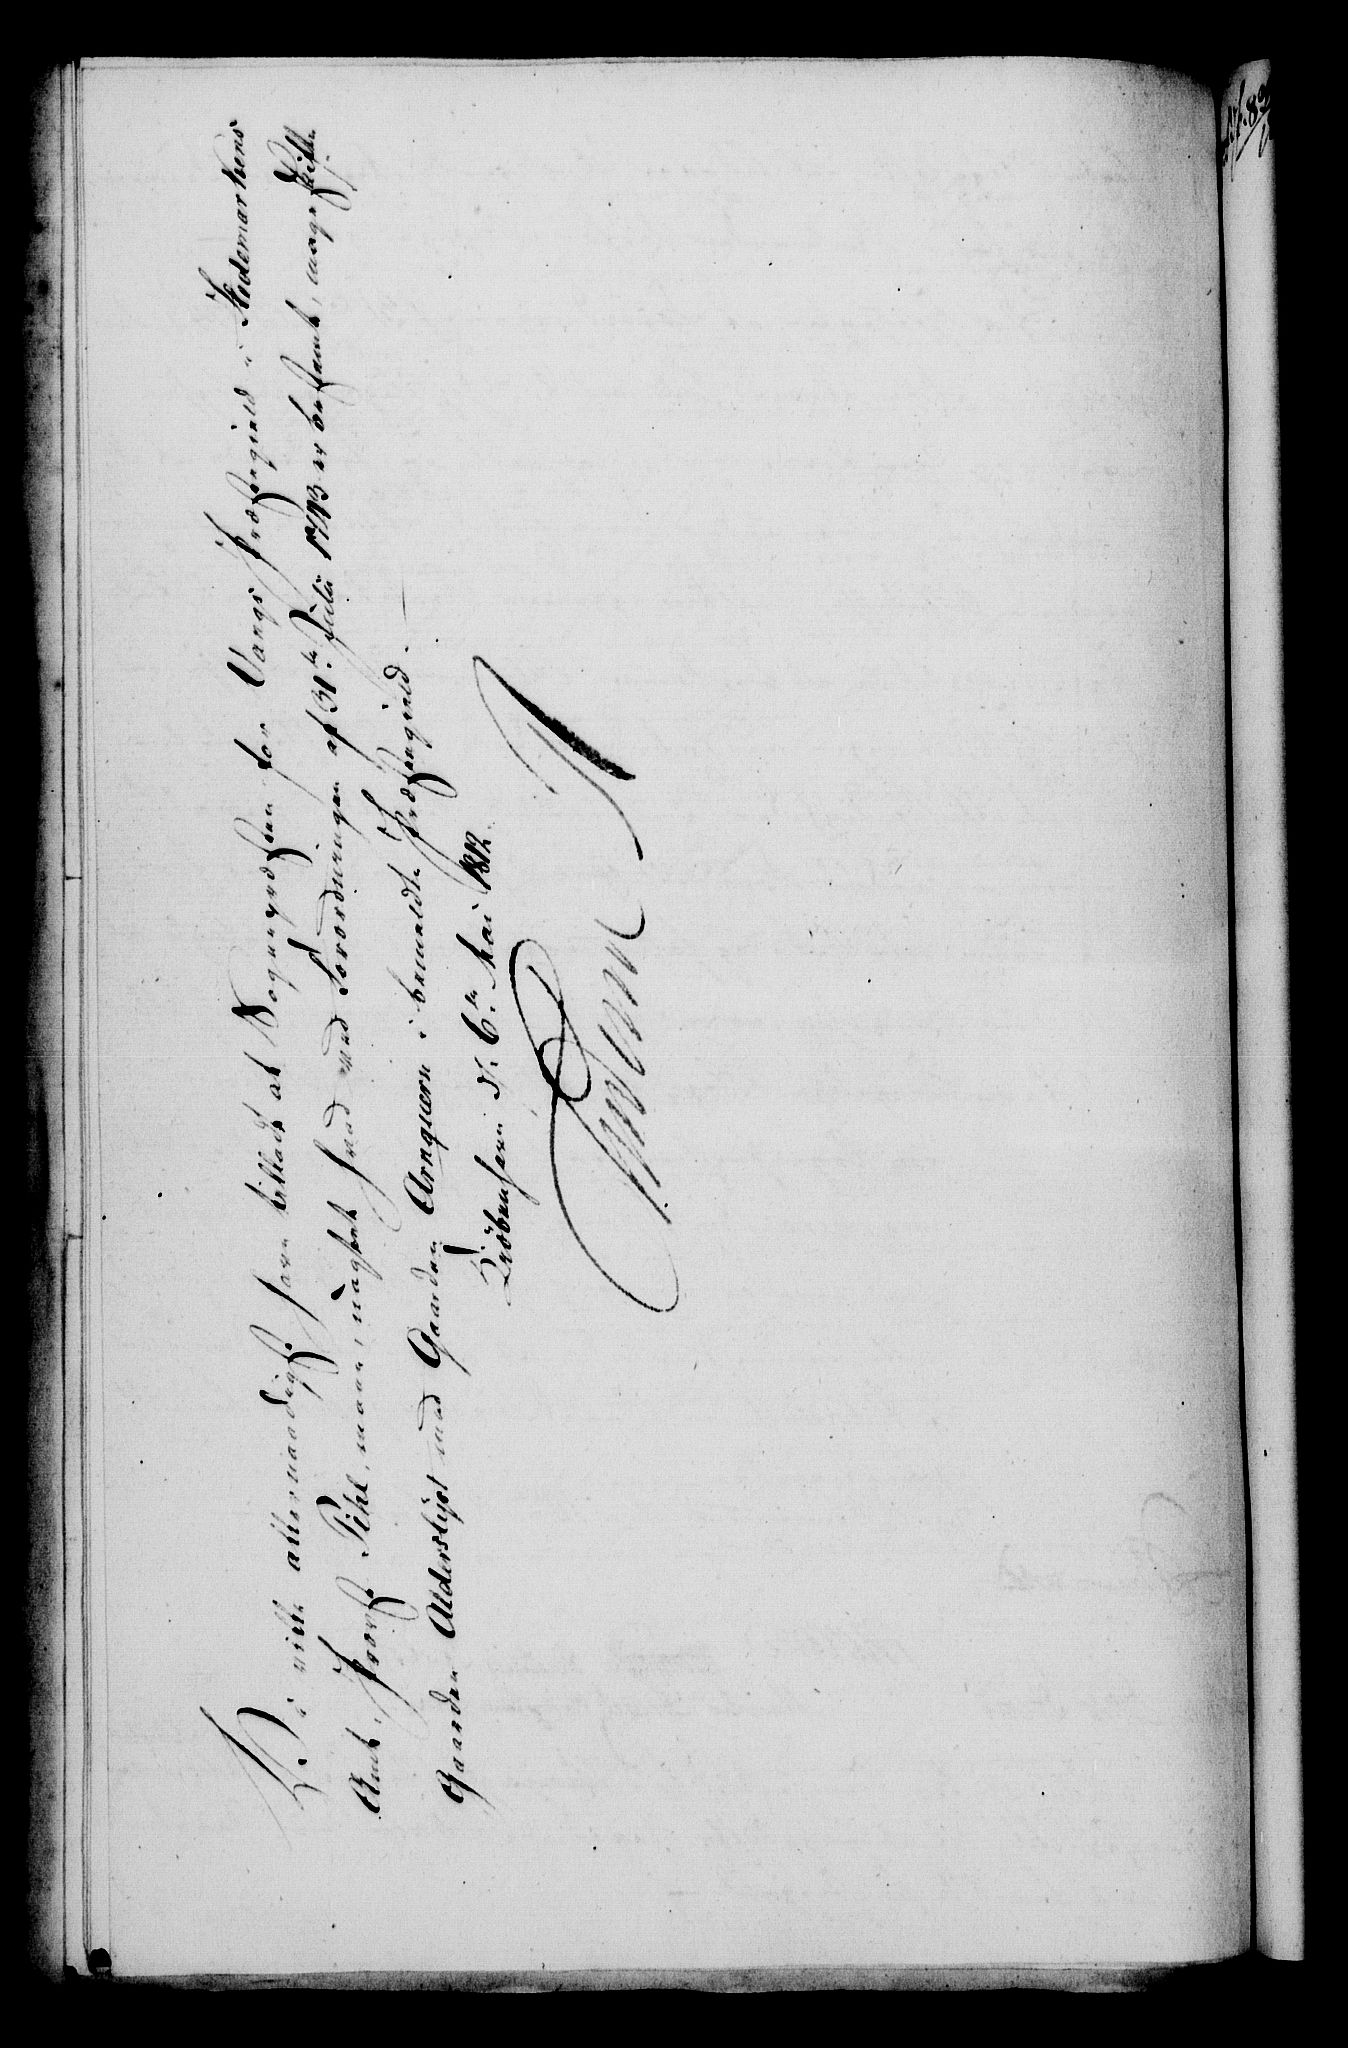 Vi ville allernaadigst have tilladt at Sognepræsten for Vangs Præstegield i Hedemarkens
Amt, Provst Pihl, maae, uagtet hvad ved Forordningen af 31te Julii 1743 er bestemt, mageskifte
Gaarden Alderslyst med Gaarden Arnqværn i bemeldte Præstegield. —
Kiöbenhavn d. 6te Mai 1812.
Frederik R